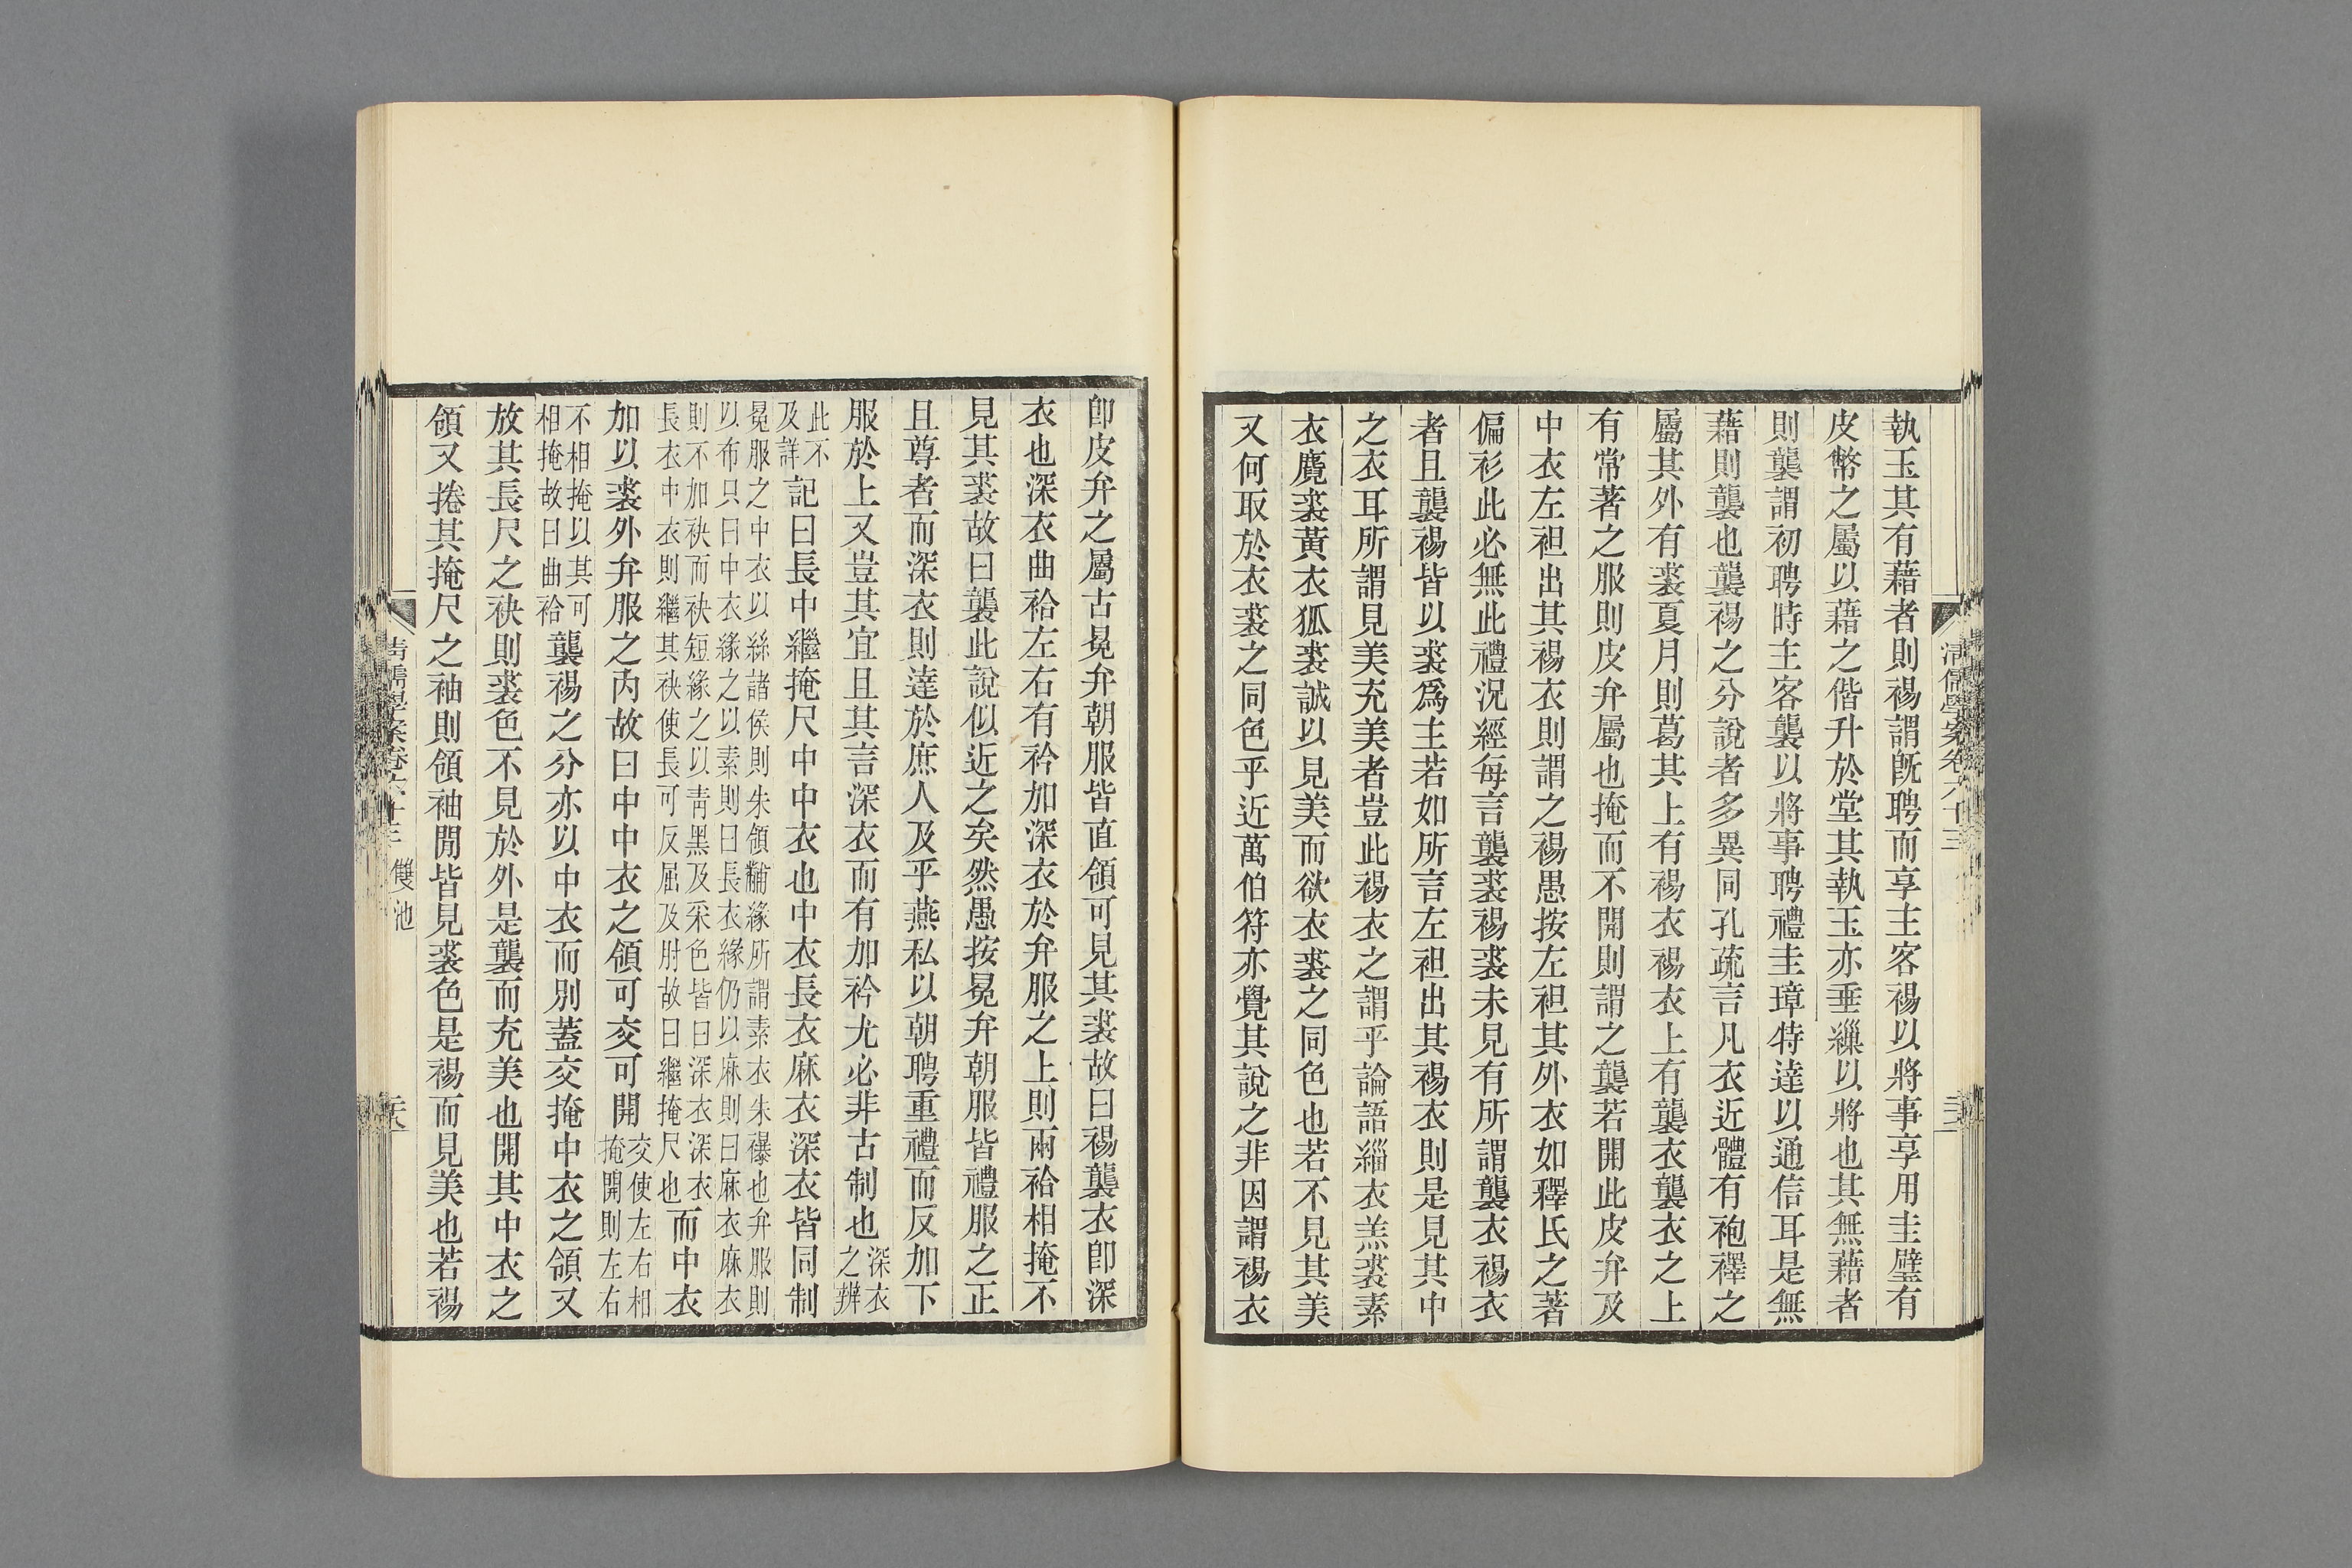 執玉其有藉者則裼謂既聘而享主客裼以將事享用圭璧有
皮幣之屬以藉之偕升於堂其執玉亦垂繅以將也其無藉者
則襲謂初聘時主客襲以將事聘禮圭璋特達以通信耳是無
藉則襲也襲裼之分說者多異同孔疏言凡衣近體有袍襗之
屬其外有裘夏月則葛其上有裼衣裼衣上有襲衣襲衣之上
有常著之服則皮弁屬也掩而不開則謂之襲若開此皮弁及
中衣左袒出其裼衣則謂之裼愚按左袒其外衣如釋氏之著
偏衫此必無此禮況經每言襲裘裼裘未見有所謂襲衣裼衣
者且襲裼皆以裘爲主若如所言左袒出其裼衣則是見其中
之衣耳所謂見美充美者豈此裼衣之謂乎論語緇衣羔裘素
衣麑裘黃衣狐裘誠以見美而欲衣裘之同色也若不見其美
又何取於衣裘之同色乎近萬伯符亦覺其說之非因謂裼衣
清儒學案卷六十三
卽皮弁之屬古冕弁朝服皆直領可見其裘故曰裼襲衣卽深
衣也深衣曲袷左右有衿加深衣於弁服之上則兩袷相掩不
見其裘故曰襲此說似近之矣然愚按冕弁朝服皆禮服之正
且尊者而深衣則達於庶人及乎燕私以朝聘重禮而反加下
服於上又豈其宜且其言深衣而有加衿尤必非古制也深衣之辨
此不及詳記曰長中繼掩尺中中衣也中衣長衣麻衣深衣皆同制
冕服之中衣以絲諸侯則朱領黼緣所謂素衣朱襮也弁服則
以布只曰中衣緣之以素則曰長衣緣仍以麻則曰麻衣麻衣
則不加袂而袂短緣之以靑黑及采色皆曰深衣深衣
長衣中衣則繼其袂使長可反屈及肘故曰繼掩尺也而中衣
加以裘外弁服之內故曰中中衣之領可交可開交使左右相掩開則左右
不相掩以其可相掩故曰曲袷襲裼之分亦以中衣而別蓋交掩中衣之領又
放其長尺之袂則裘色不見於外是襲而充美也開其中衣之
領又捲其掩尺之袖則領袖閒皆見裘色是裼而見美也若裼
清儒學案卷六十三 雙池